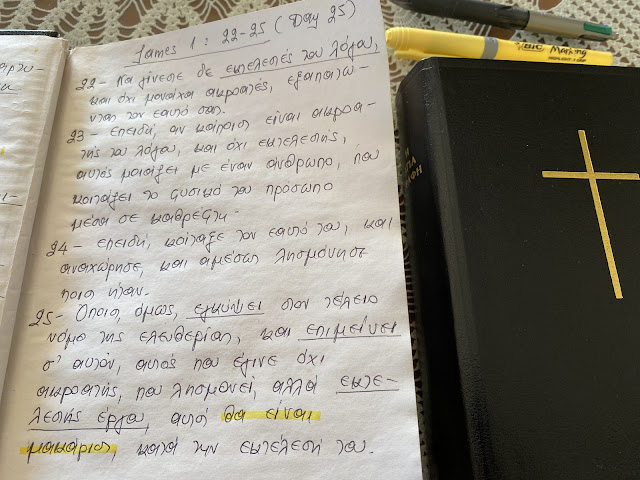 James 1 : 22-25 ( Day 25)
22 - Να γίνεστε δε εκτελεστές του λόγου,
και όχι μονάχα ακροατές, εξαπατώ-
ντας τον εαυτό σας.
23 - επειδή, αν κάποιος είναι ακροα-
τής του λόγου, και όχι εκτελεστής,
αυτός μοιάζει με έναν άνθρωπο, που
κοιτάζει το φυσικό του πρόσωπο
μέσα σε καθρέφτη.
24 - επειδή, κοίταξε τον εαυτό του, και
αναχώρησε, και αμέσως λησμόνησε
ποιος ήταν.
25 - Όποιος, όμως, εγκύψει στον τέλειο
νόμο της ελευθερίας, και επιμείνει
σ' αυτόν, αυτός που έγινε όχι
ακροατής, που λησμονεί, αλλά εκτε-
λεστής έργου, αυτός θα είναι
μακάριος, κατά την εκτέλεσή του.
Η
ΑΓΙΑ
ΓΡΑΦΗ
BIC Marking